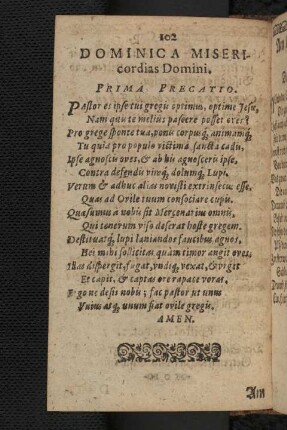 102
DOMINICA MISERI-
cordias Domini.
PRIMA PRECATIO.
Pastor es ipse tui gregis optimus, optime Jesu,
Nam quis te melius pascere posset oves?
Pro grege sponte tua, ponis corpusq́, animamq́,
Tu quia pro populo victima, sancta cadis,
Ipse agnoscis oves, & ab his agnosceris ipse,
Contra defendis vimq́, dolumq́, Lupi,
Verum & adhuc alias novisti extrinsecus esse,
Quas ad Ovile tuum consociare cupis.
Quæsumus a nobis sit Mercenarius omnis,
Qui tenerum viso deserat hoste gregem.
Destituatq́, lupi laniandos faucibus agnos,
Hei mihi sollicitas quàm timor angit oves.
Has dispergit, fugat, vndiq́, vexat, & vrget
Et capit, & captas ore rapace vorat.
Ergo ne desis nobis; fac pastor ut unus
Vnius atq́, unum fiat ovile gregis.
AMEN.